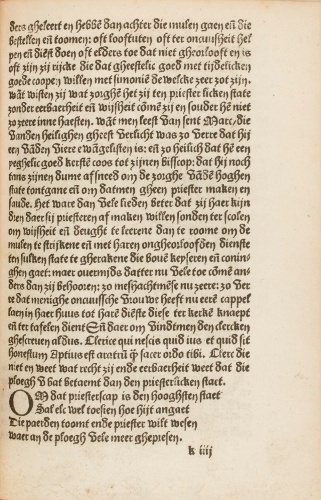 ders gheleert en hebbē dan achter die mulen gaen eñ die
bestellen eñ toomen: oft looftuten oft ter oncuisheit hel
pen eñ diēst doen oft elders toe dat niet gheorlooft en is
oft zijn zij rijcke die dat gheestelic goed met tijdelicken
goede coopē willen met simoniē dewelcke zeer zot zijn.
wāt wisten zij wat zorghē het zij ten priester licken state
zonder eerbaerheit eñ wijsheit cōmē zij en souder hē niet
zo zeere inne haesten. wāt men leest van sent Marc/die
vanden heilighen gheest verlicht was zo verre dat hij
een vādēn viere ewāgelisten is: eñ zo heilich dat hē een
yeghelic goed kerstē coos tot zijnen bisscop: dat hij noch
tans zijnen dume afsneed om de zorghe vādē hoghen
state tontgane eñ om datmen gheen priester maken en
saude. Het ware dan vele lieden beter dat zij haer kijn
dren daer sij priesteren af maken willen sonden ter scolen
om wijsheit eñ deught te leerene dan te roome om de
mulen te strijkene eñ met haren onghoorloofden dienste
ten sulken state te gherakene die bouē keyseren eñ conin-
ghen gaet: maer ouermids datter nu vele toe cōmē an-
ders dan zij behooren: zo meshachtmēse nu zeere: zo ver
re dat menighe oncuussche vrouwe heeft nu eenē cappel
laen in haer huus tot harē diēste diese ter kerkē knaept
eñ ter tafelen dient Eñ daer om vindtmen den clercken
ghescreuen aldus. Clerice qui nescis quid ius et quid sit
honestum Aptius est aratrū qz̄ sacer ordo tibi. Clerc die
niet en weet wat recht zij ende eerbaerheit weet dat die
ploegh v bat betaemt dan den priesterlicken staet.
OM dat priesterscap is den hooghsten staet
Sal elc wel toesien hoe hijt angaet
Die paerden toomt ende priester wilt wesen
waer an de ploegh vele meer ghepresen.
k iiij